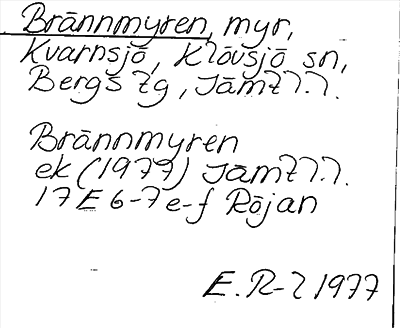 Brännmyren, myr,
Kvarnsjö, Klövsjö sn,
Bergs tg, Jämtl.l.
Brännmyren
ek (1977) Jämtl.l.
17E 6-7 e-f Röjan
E.R-l 1977